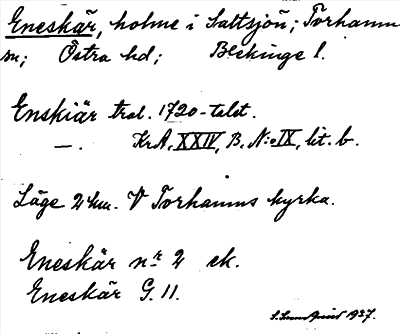 Eneskär, holme i Saltsjön; Torhamns
sn; Östra hd; Blekinge l.
Enskiär trol. 1720-talet.
—. KrA. XXIV, B. N:o IX, lit. b.
Läge 2 km. V Torhamns kyrka.
Eneskär nr 2 ek.
Eneskär G. 11.
1937.